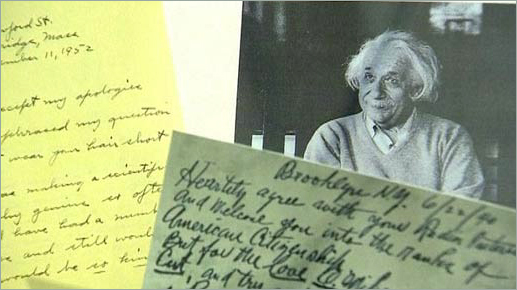 ford St.
ridge, Mass
ember 11, 1952
ccept my apologies
phrased my question
wear your hair short
as making a scientific
why genius so often
I have had a num
ve and still would
would be so kin
Brooklyn N.Y. 6/22/40
Heartily agree with your Radio
And welcome you into the Ranks of
American Citizenship
But for the Love
Cut, and